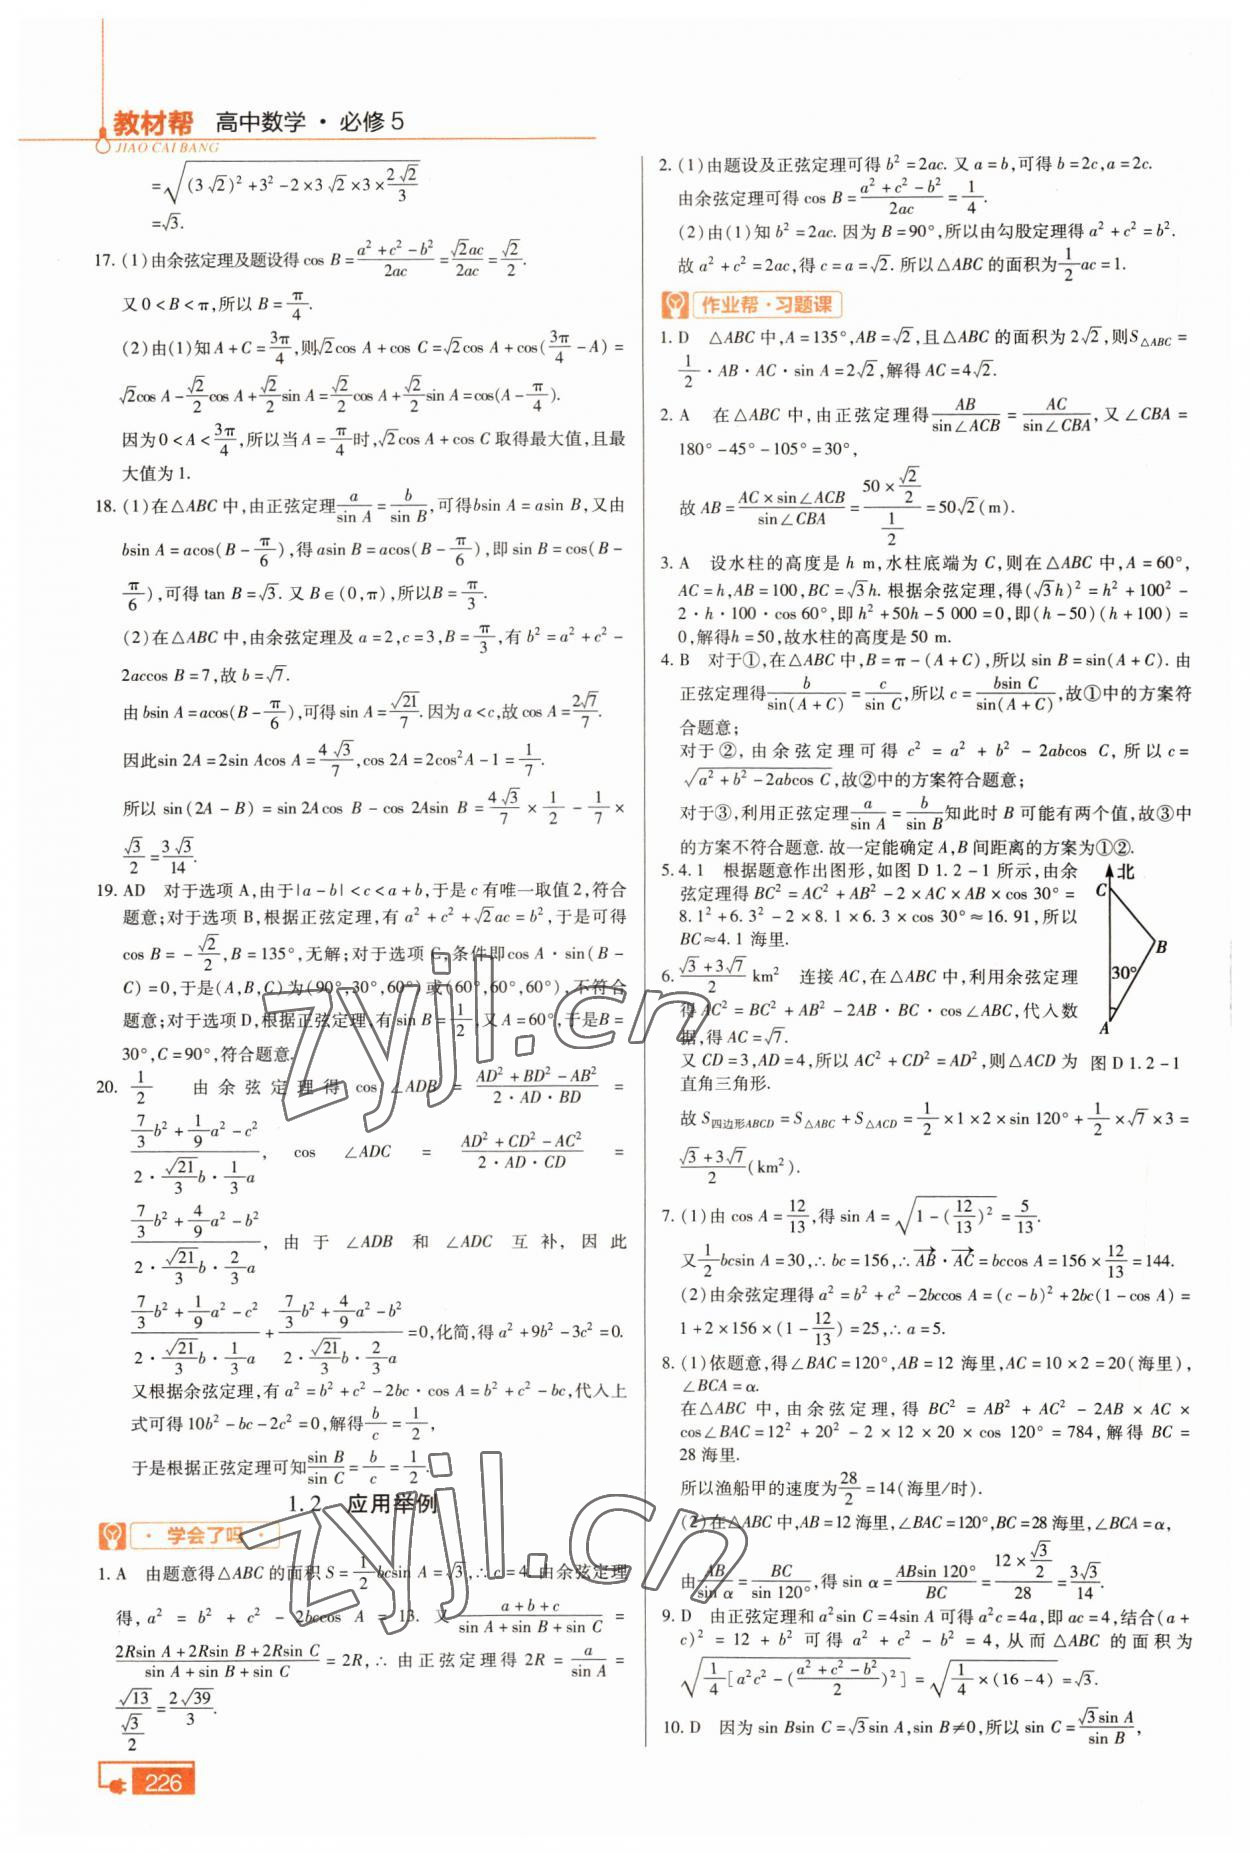 教材帮 高中数学·必修5
JIAO CAI BANG
=√((3√2)²+3²-2×3√2×3×(2√2)/3)
=√3.
17. (1)由余弦定理及题设得 cos B=(a²+c²-b²)/(2ac)=(√2ac)/(2ac)=√2/2.
又0<B<π,所以 B=π/4.
(2)由(1)知A+C=3π/4,则√2cos A+cos C=√2cos A+cos(3π/4-A)=
√2cos A-√2/2cos A+√2/2sin A=√2/2cos A+√2/2sin A=cos(A-π/4).
因为0<A<3π/4,所以当A=π/4时,√2cos A+cos C取得最大值,且最
大值为1.
18. (1)在△ABC中,由正弦定理a/sin A=b/sin B,可得bsin A=asin B,又由
bsin A=acos(B-π/6),得asin B=acos(B-π/6),即sin B=cos(B-
π/6),可得tan B=√3.又B∈(0,π),所以B=π/3.
(2)在△ABC中,由余弦定理及a=2,c=3,B=π/3,有b²=a²+c²-
2accos B=7,故b=√7.
由bsin A=acos(B-π/6),可得sin A=√21/7.因为a<c,故cos A=2√7/7.
因此sin 2A=2sin Acos A=4√3/7,cos 2A=2cos²A-1=1/7.
所以sin(2A-B)=sin 2Acos B-cos 2Asin B=4√3/7×1/2-1/7×
√3/2=3√3/14.
19. AD 对于选项A,由于|a-b|<c<a+b,于是c有唯一取值2,符合
题意;对于选项B,根据正弦定理,有a²+c²+√2ac=b²,于是可得
cos B=-√2/2,B=135°,无解;对于选项C,条件即cos A·sin(B-
C)=0,于是(A,B,C)为(90°,30°,60°)或(60°,60°,60°),不符合
题意;对于选项D,根据正弦定理,有sin B=1/2,又A=60°,于是B=
30°,C=90°,符合题意.
20. 1/2 由余弦定理得cos∠ADB=(AD²+BD²-AB²)/(2·AD·BD)=
(7/3b²+1/9a²-c²)/(2·√21/3b·1/3a), cos∠ADC=(AD²+CD²-AC²)/(2·AD·CD)=
(7/3b²+4/9a²-b²)/(2·√21/3b·2/3a),由于∠ADB和∠ADC互补,因此
(7/3b²+1/9a²-c²)/(2·√21/3b·1/3a)+(7/3b²+4/9a²-b²)/(2·√21/3b·2/3a)=0,化简,得a²+9b²-3c²=0.
又根据余弦定理,有a²=b²+c²-2bc·cos A=b²+c²-bc,代入上
式可得10b²-bc-2c²=0,解得b/c=1/2,
于是根据正弦定理可知sin B/sin C=b/c=1/2.
1.2 应用举例
·学会了吗·
1. A 由题意得△ABC的面积S=1/2bcsin A=√3,∴c=4.由余弦定理
得,a²=b²+c²-2bccos A=13.又(a+b+c)/(sin A+sin B+sin C)=
(2Rsin A+2Rsin B+2Rsin C)/(sin A+sin B+sin C)=2R,∴由正弦定理得2R=a/sin A=
√13/(√3/2)=2√39/3.
226
2. (1)由题设及正弦定理可得b²=2ac.又a=b,可得b=2c,a=2c.
由余弦定理可得cos B=(a²+c²-b²)/(2ac)=1/4.
(2)由(1)知b²=2ac.因为B=90°,所以由勾股定理得a²+c²=b².
故a²+c²=2ac,得c=a=√2.所以△ABC的面积为1/2ac=1.
作业帮·习题课
1. D △ABC中,A=135°,AB=√2,且△ABC的面积为2√2,则S△ABC=
1/2·AB·AC·sin A=2√2,解得AC=4√2.
2. A 在△ABC中,由正弦定理得AB/sin∠ACB=AC/sin∠CBA,又∠CBA=
180°-45°-105°=30°,
故AB=(AC×sin∠ACB)/(sin∠CBA)=(50×√2/2)/(1/2)=50√2(m).
3. A 设水柱的高度是h m,水柱底端为C,则在△ABC中,A=60°,
AC=h,AB=100,BC=√3h.根据余弦定理,得(√3h)²=h²+100²-
2·h·100·cos 60°,即h²+50h-5 000=0,即(h-50)(h+100)=
0,解得h=50,故水柱的高度是50 m.
4. B 对于①,在△ABC中,B=π-(A+C),所以sin B=sin(A+C).由
正弦定理得b/sin(A+C)=c/sin C,所以c=bsin C/sin(A+C),故①中的方案符
合题意;
对于②,由余弦定理可得c²=a²+b²-2abcos C,所以c=
√(a²+b²-2abcos C),故②中的方案符合题意;
对于③,利用正弦定理a/sin A=b/sin B知此时B可能有两个值,故③中
的方案不符合题意.故一定能确定A,B间距离的方案为①②.
5. 4.1 根据题意作出图形,如图D1.2-1所示,由余
弦定理得BC²=AC²+AB²-2×AC×AB×cos 30°=
8.1²+6.3²-2×8.1×6.3×cos 30°≈16.91,所以
BC≈4.1海里.
北
C
B
30°
A
图D1.2-1
6. (√3+3√7)/2 km² 连接AC,在△ABC中,利用余弦定理
得AC²=BC²+AB²-2AB·BC·cos∠ABC,代入数
据,得AC=√7.
又CD=3,AD=4,所以AC²+CD²=AD²,则△ACD为
直角三角形.
故S四边形ABCD=S△ABC+S△ACD=1/2×1×2×sin 120°+1/2×√7×3=
(√3+3√7)/2(km²).
7. (1)由cos A=12/13,得sin A=√(1-(12/13)²)=5/13.
又1/2bcsin A=30,∴bc=156,∴AB→·AC→=bccos A=156×12/13=144.
(2)由余弦定理得a²=b²+c²-2bccos A=(c-b)²+2bc(1-cos A)=
1+2×156×(1-12/13)=25,∴a=5.
8. (1)依题意,得∠BAC=120°,AB=12海里,AC=10×2=20(海里),
∠BCA=α.
在△ABC中,由余弦定理,得BC²=AB²+AC²-2AB×AC×
cos∠BAC=12²+20²-2×12×20×cos 120°=784,解得BC=
28海里.
所以渔船甲的速度为28/2=14(海里/时).
(2)在△ABC中,AB=12海里,∠BAC=120°,BC=28海里,∠BCA=α,
由AB/sin α=BC/sin 120°,得sin α=ABsin 120°/BC=(12×√3/2)/28=3√3/14.
9. D 由正弦定理和a²sin C=4sin A可得a²c=4a,即ac=4,结合(a+
c)²=12+b²可得a²+c²-b²=4,从而△ABC的面积为
√(1/4[a²c²-((a²+c²-b²)/2)²])=√(1/4×(16-4))=√3.
10. D 因为sin Bsin C=√3sin A,sin B≠0,所以sin C=√3sin A/sin B,
zyjl.cn
zyjl.cn